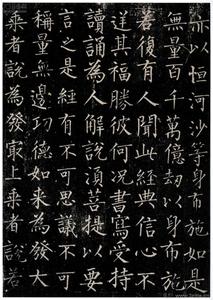 亦以恒河沙等身布施如是
無量百千萬億劫以身布施
若復有人聞此經典信心不
逆其福勝彼何況書寫受持
讀誦為人解說須菩提以要
言之是經有不可思議不可
稱量無邊功德如來為發大
乘者說為發㝡上乘者說若